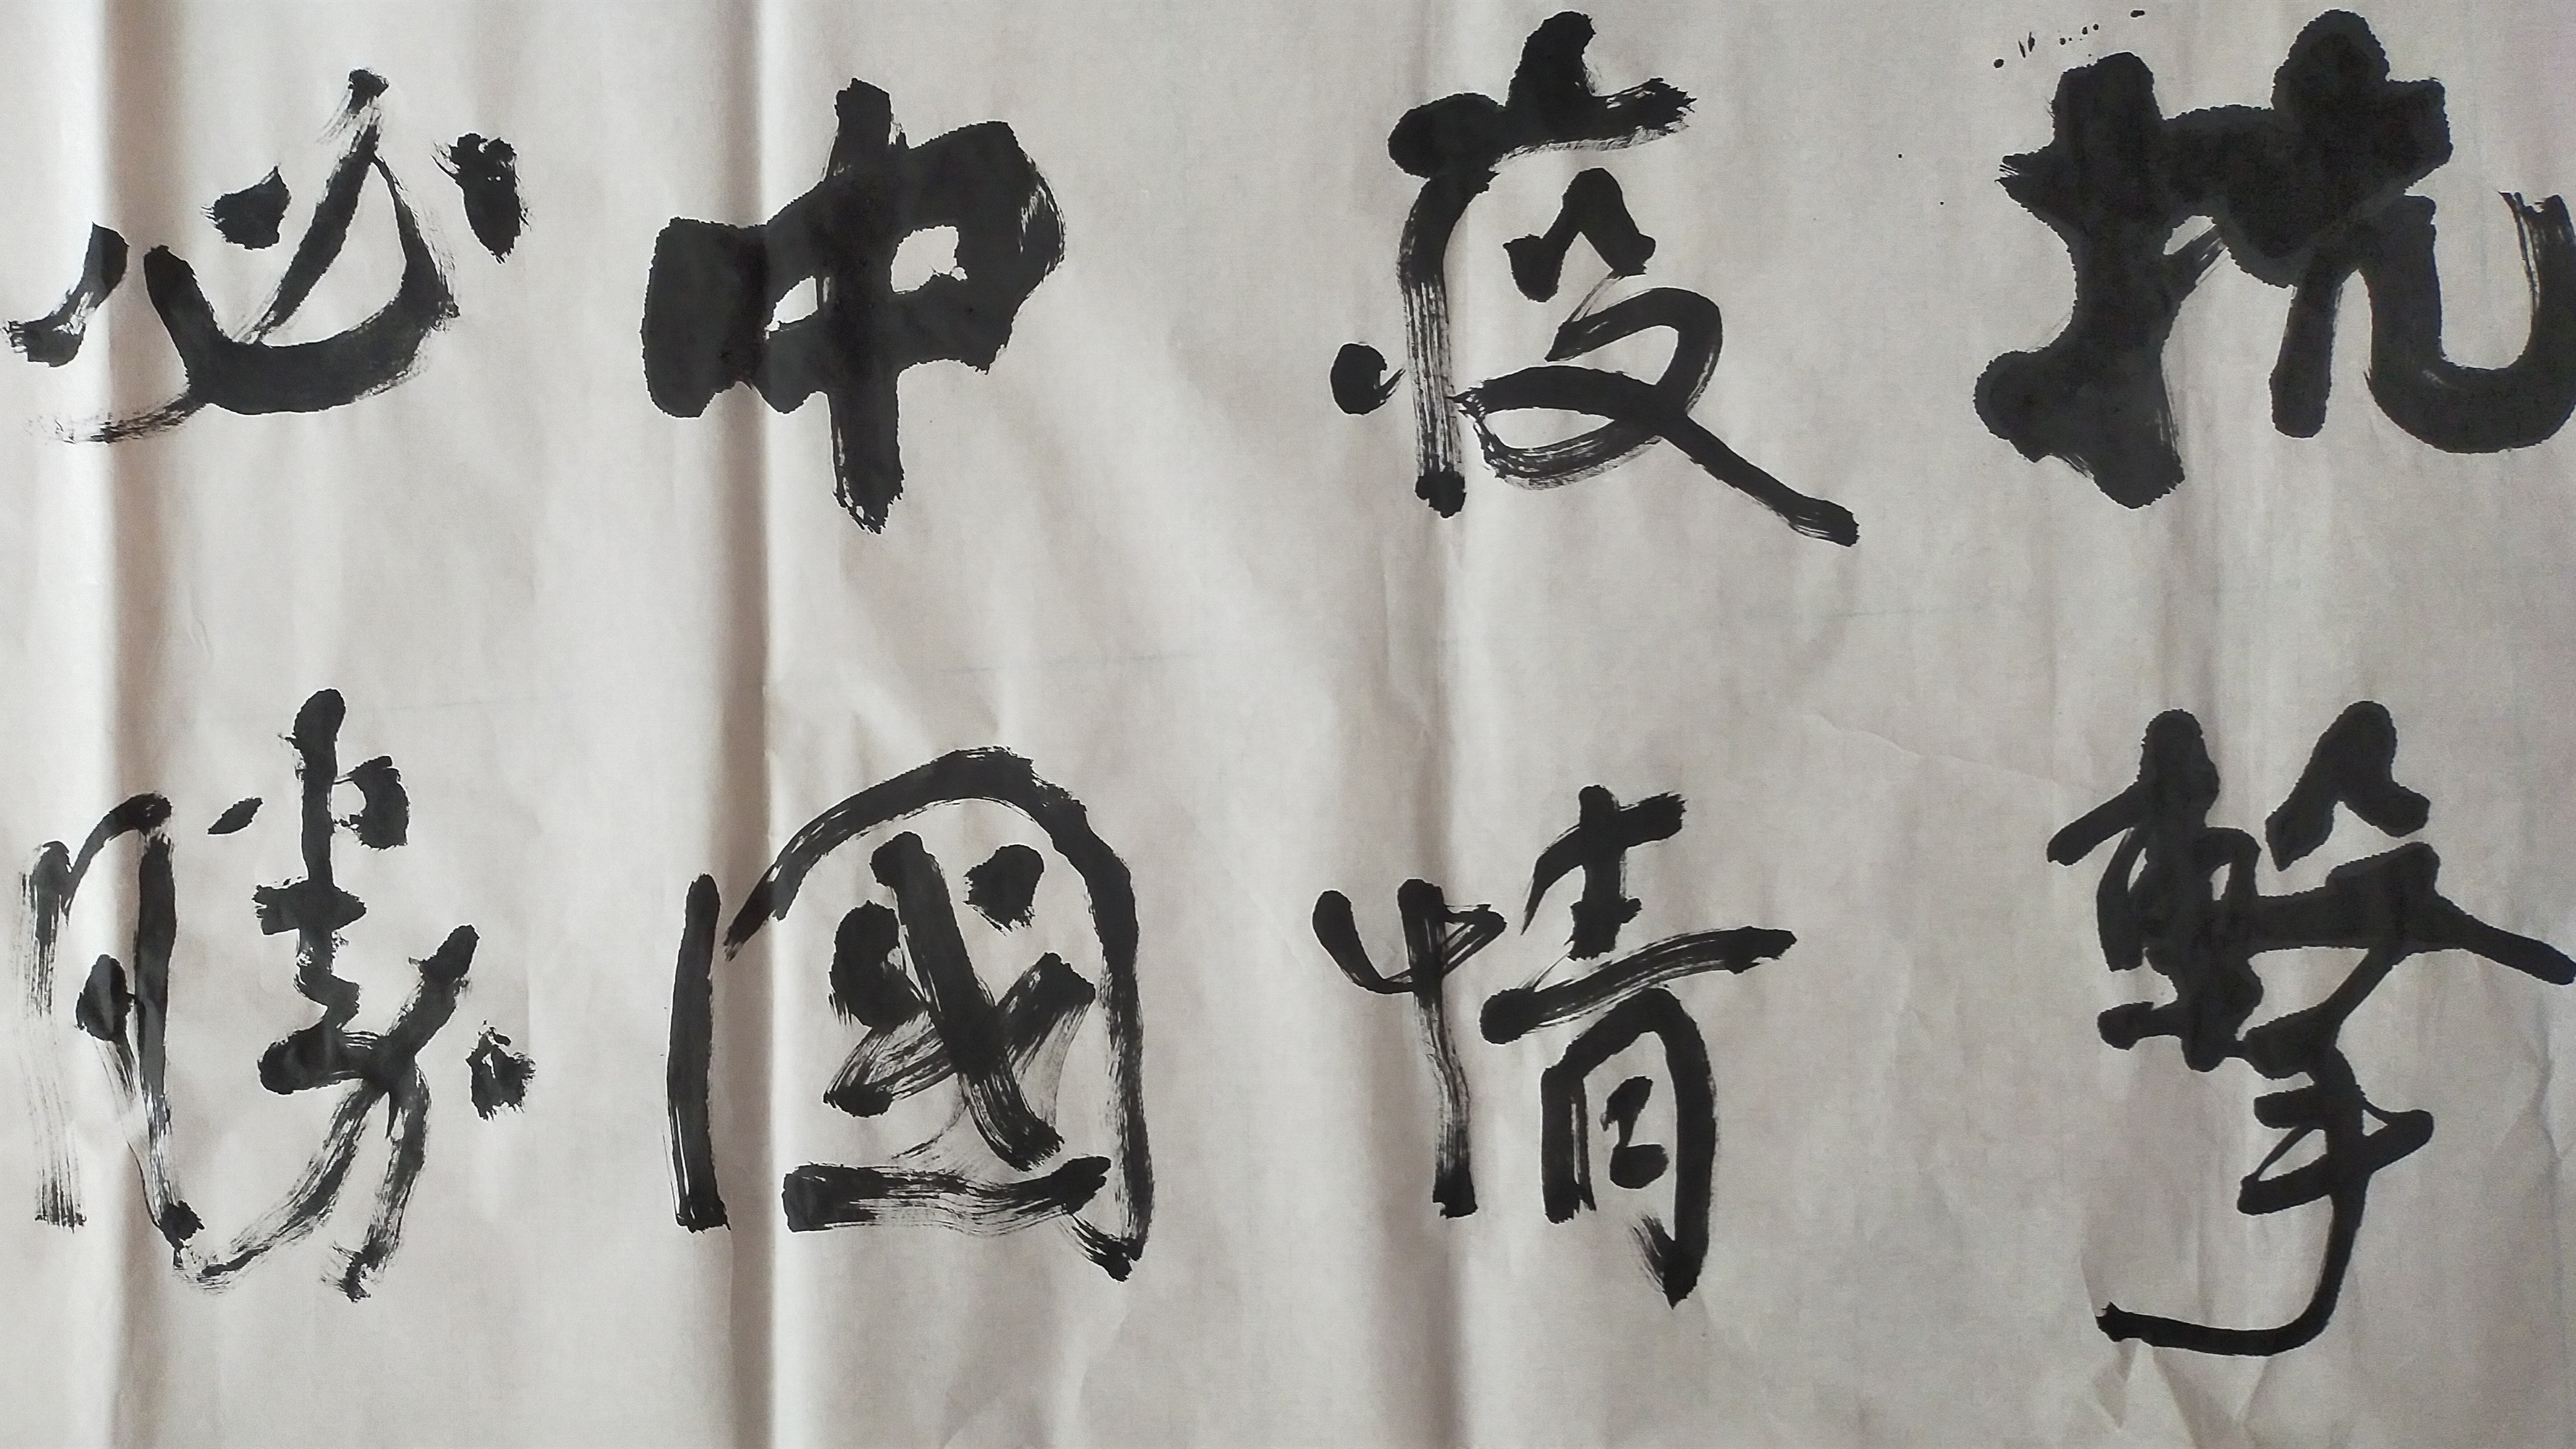 抗擊
疫情
中國
必勝